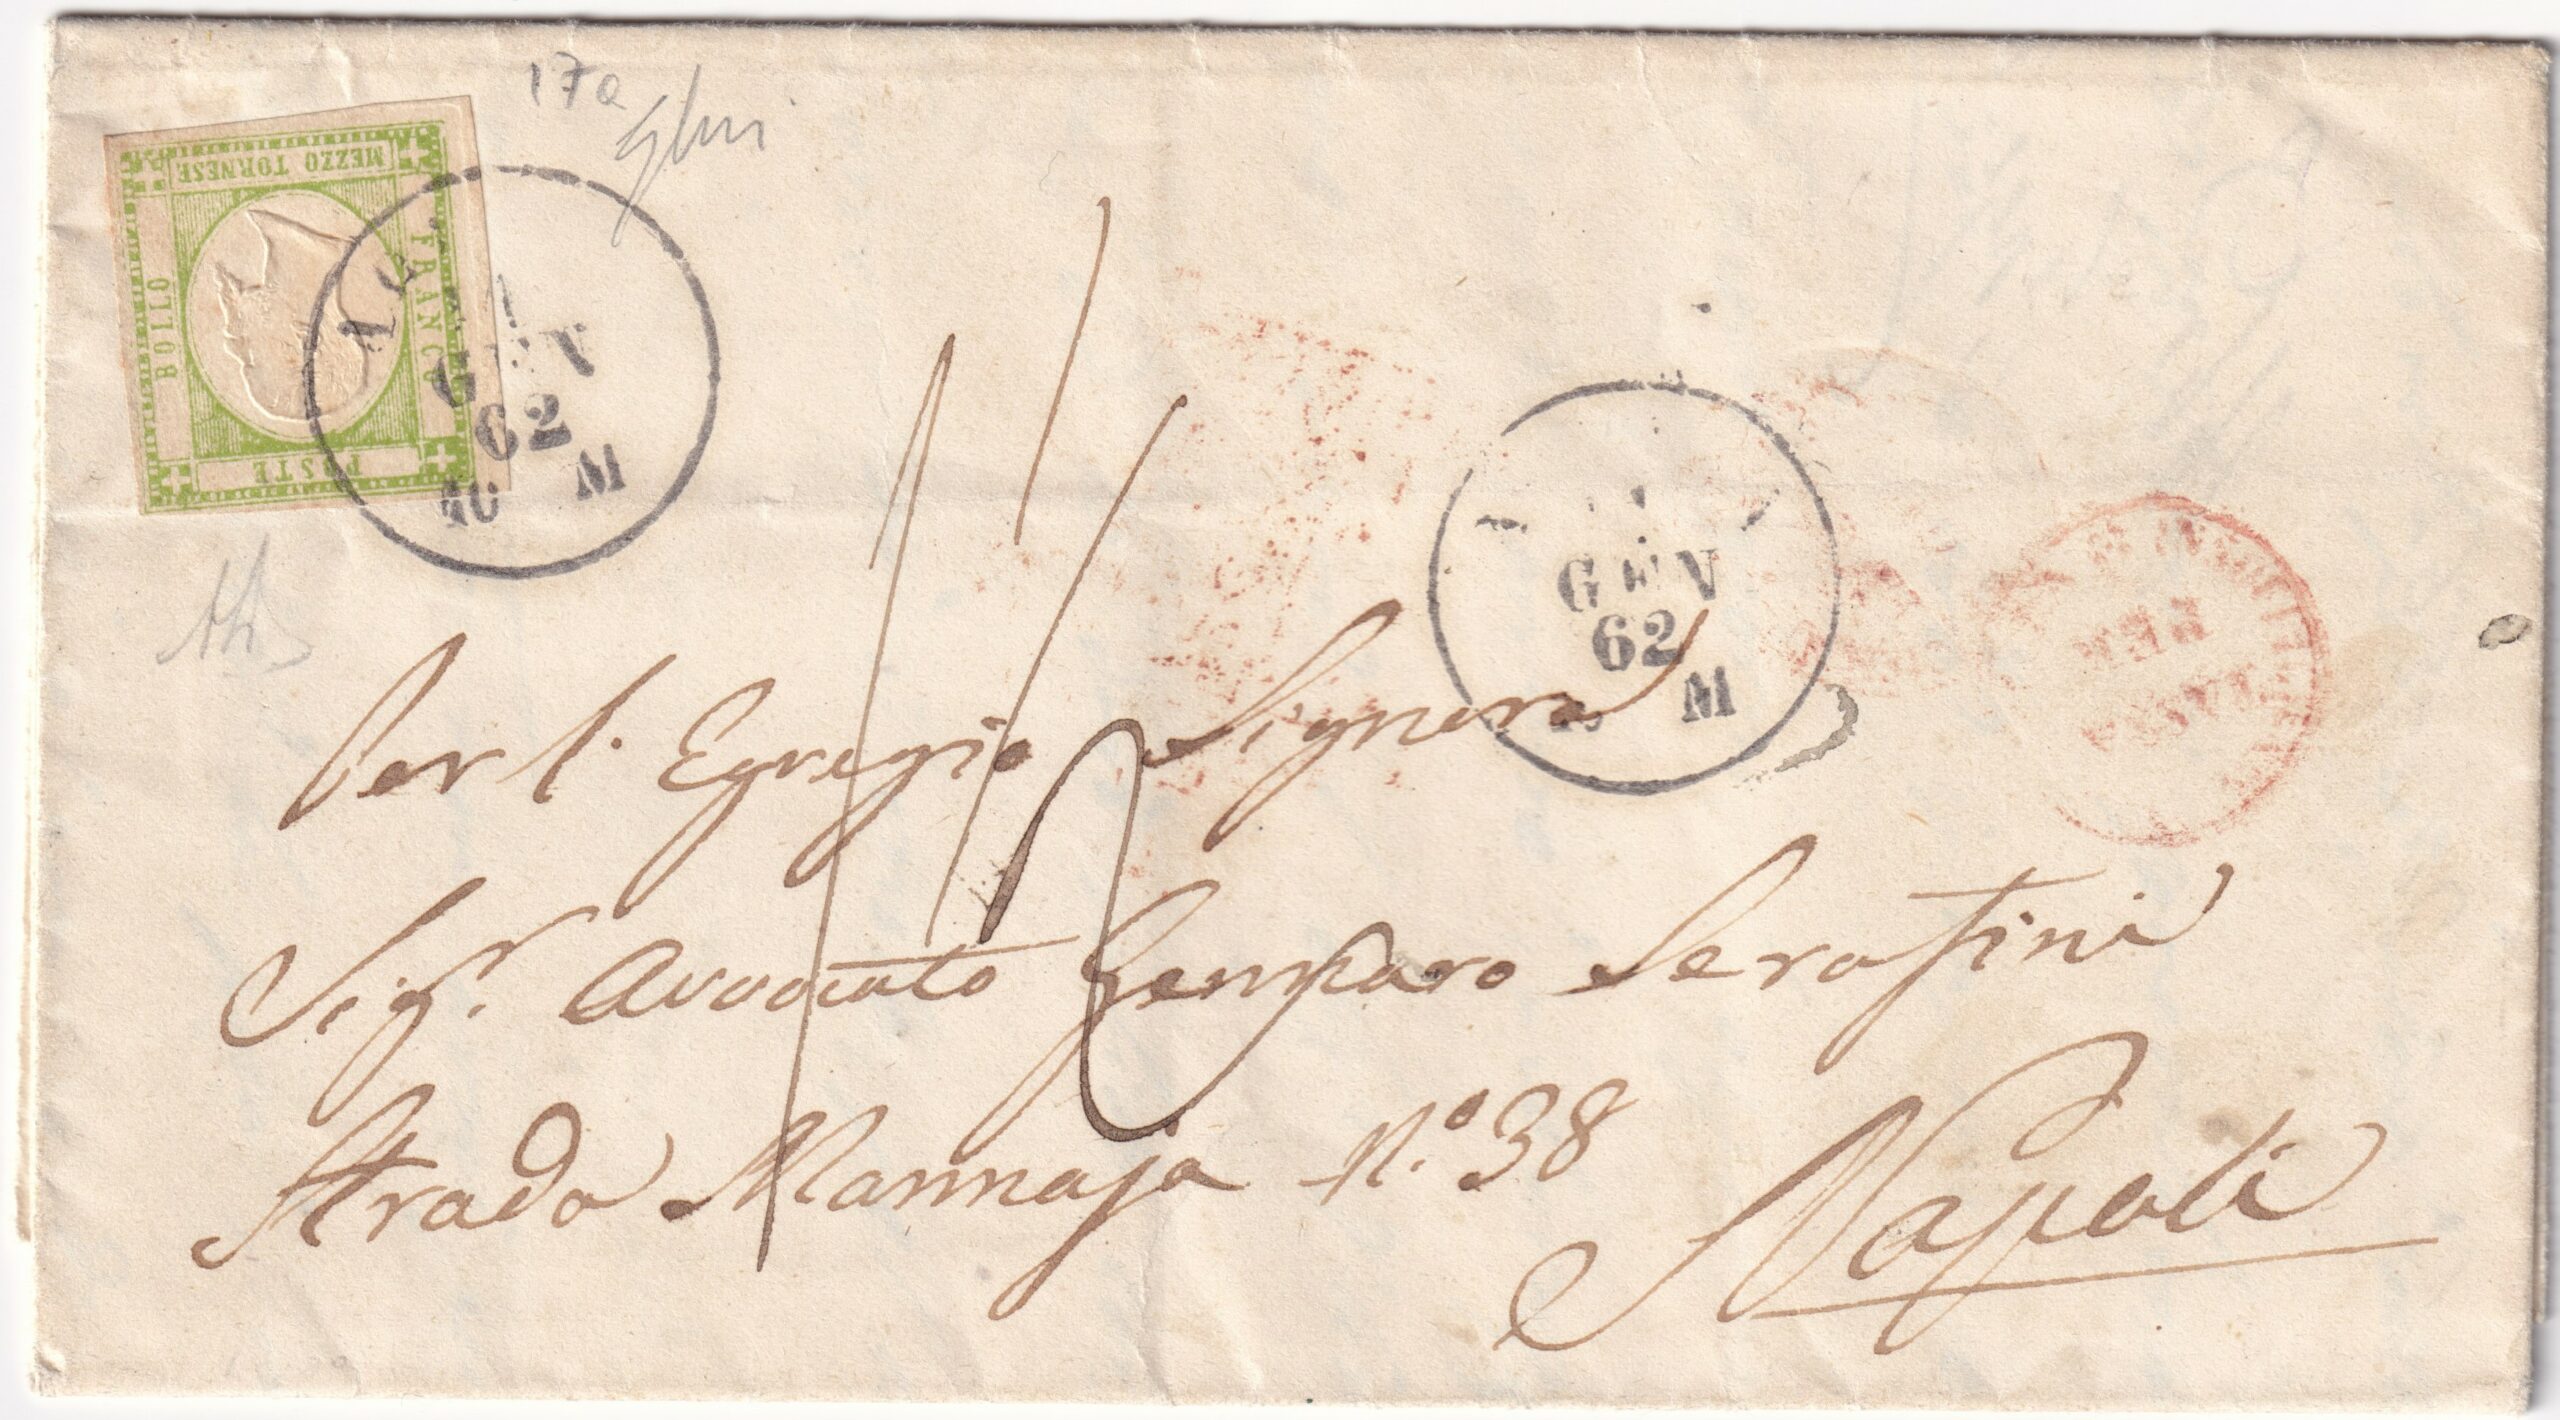 17a
MEZZO TORNESE
FRANCO
BOLLO
POSTE
GEN
62
M
GEN
62
M
Per l'Egregio Signore
Sigr. Avvocato Gennaro Serafini
Strada Mannaja N.º 38
Napoli